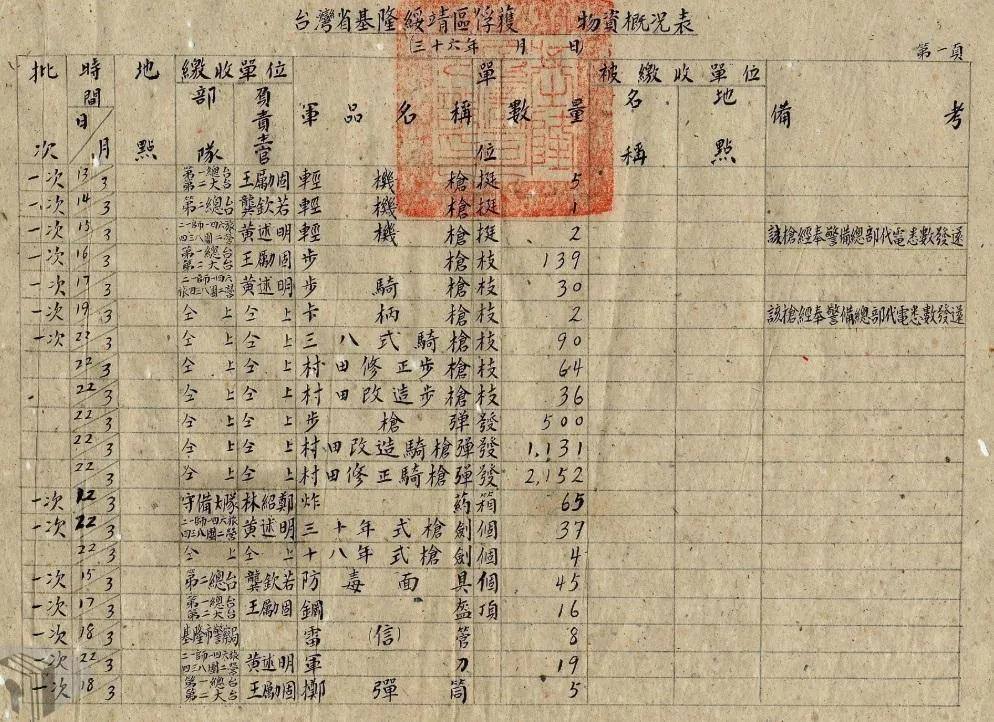 台灣省基隆綏靖區俘獲 物資概況表
(三十六年 月 日)
第一頁
批次 時間 日/月 地點 繳收單位 部隊 負責主官 軍品名稱 單位 數量 被繳收單位 名稱 地點 備考
一次 13/3 第一總台第二大台 王勵固 輕機槍 挺 5
一次 14/3 第二總台 龔欽若 輕機槍 挺 1
一次 15/3 二一師一四六旅四三八團二營 黃述明 輕機槍 挺 2 該槍經奉警備總部代電悉數發還
一次 16/3 第一總台第二大台 王勵固 步槍 枝 139
一次 17/3 二一師一四六旅四三八團二營 黃述明 步騎槍 枝 30
一次 19/3 仝上 仝上 卡柄槍 枝 2 該槍經奉警備總部代電悉數發還
一次 22/3 仝上 仝上 三八式騎槍 枝 90
22/3 仝上 仝上 村田修正步槍 枝 64
22/3 仝上 仝上 村田改造步槍 枝 36
22/3 仝上 仝上 步槍彈 發 500
22/3 仝上 仝上 村田改造騎槍彈 發 1,131
22/3 仝上 仝上 村田修正騎槍彈 發 2,152
一次 12/3 守備大隊 林紹鄭 炸藥 箱 65
一次 22/3 二一師一四六旅四三八團二營 黃述明 三十年式槍劍 個 37
22/3 仝上 仝上 十八年式槍劍 個 4
一次 15/3 第二總台 龔欽若 防毒面具 個 45
一次 17/3 第一總台第二大台 王勵固 鋼盔 頂 16
一次 18/3 基隆市警察局 雷(信)管 8
一次 22/3 二一師一四六旅四三八團二營 黃述明 軍刀 19
一次 18/3 第一總台第二大台 王勵固 擲彈筒 5